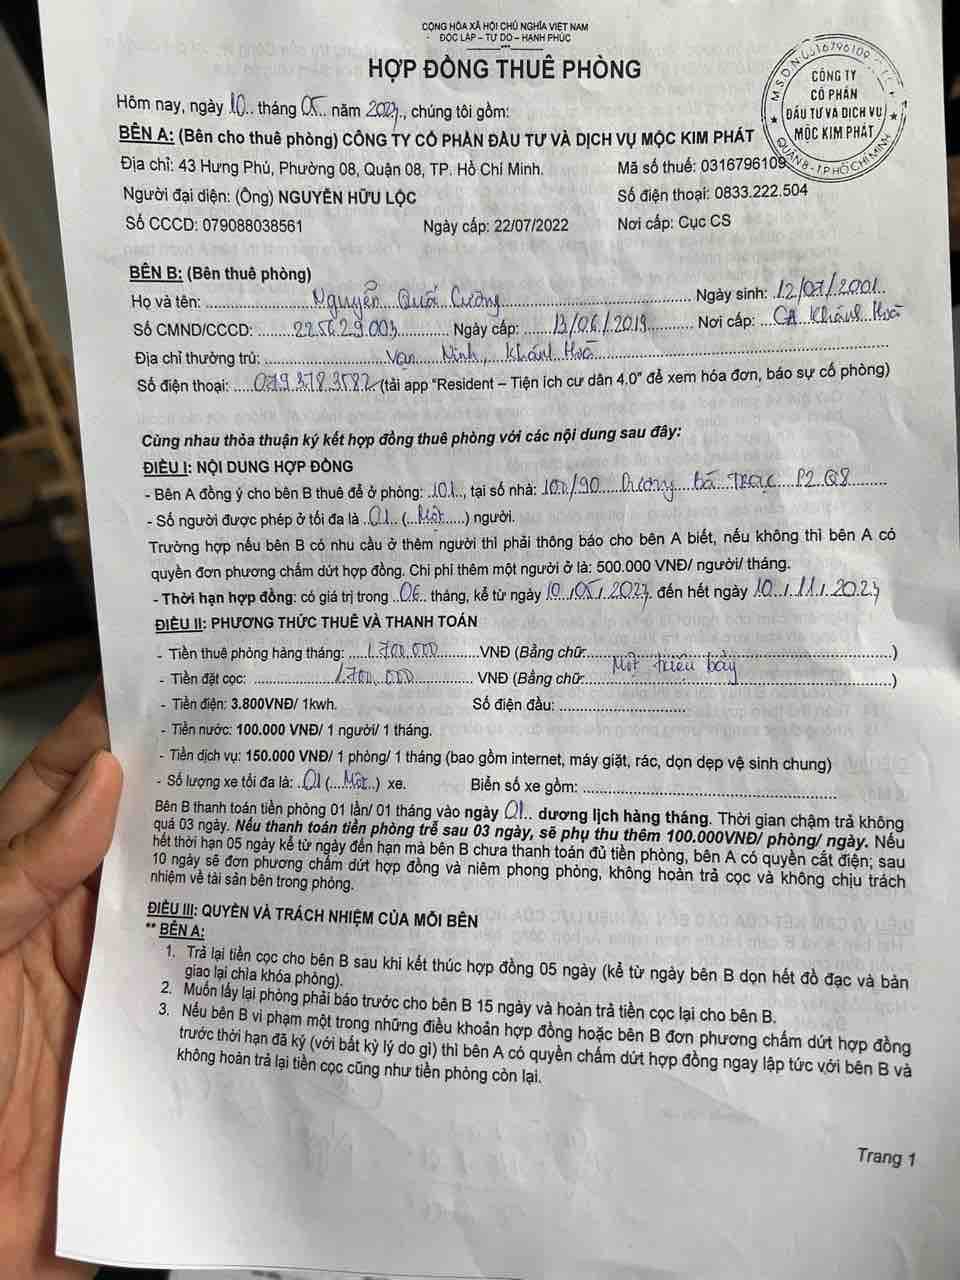 CỘNG HÒA XÃ HỘI CHỦ NGHĨA VIỆT NAM
ĐỘC LẬP – TỰ DO – HẠNH PHÚC
HỢP ĐỒNG THUÊ PHÒNG
M.S.D.N: 0316796109
CÔNG TY
CỔ PHẦN
ĐẦU TƯ VÀ DỊCH VỤ
MỘC KIM PHÁT
QUẬN 8 - T.P HỒ CHÍ MINH
Hôm nay, ngày 10.. tháng 05.. năm 2023., chúng tôi gồm:
BÊN A: (Bên cho thuê phòng) CÔNG TY CỔ PHẦN ĐẦU TƯ VÀ DỊCH VỤ MỘC KIM PHÁT
Địa chỉ: 43 Hưng Phú, Phường 08, Quận 08, TP. Hồ Chí Minh. Mã số thuế: 0316796109
Người đại diện: (Ông) NGUYỄN HỮU LỘC Số điện thoại: 0833.222.504
Số CCCD: 079088038561 Ngày cấp: 22/07/2022 Nơi cấp: Cục CS
BÊN B: (Bên thuê phòng)
Họ và tên: Nguyễn Quốc Cường Ngày sinh: 12/07/2001
Số CMND/CCCD: 225629003 Ngày cấp: 13/06/2019 Nơi cấp: CA Khánh Hoà
Địa chỉ thường trú: Vạn Ninh, Khánh Hoà
Số điện thoại: 079.378.3582 (tải app "Resident – Tiện ích cư dân 4.0" để xem hóa đơn, báo sự cố phòng)
Cùng nhau thỏa thuận ký kết hợp đồng thuê phòng với các nội dung sau đây:
ĐIỀU I: NỘI DUNG HỢP ĐỒNG
- Bên A đồng ý cho bên B thuê để ở phòng: 101.., tại số nhà: Dương Bá Trạc P2 Q8
- Số người được phép ở tối đa là 01.. (..Một....) người.
Trường hợp nếu bên B có nhu cầu ở thêm người thì phải thông báo cho bên A biết, nếu không thì bên A có
quyền đơn phương chấm dứt hợp đồng. Chi phí thêm một người ở là: 500.000 VNĐ/ người/ tháng.
- Thời hạn hợp đồng: có giá trị trong ..06.. tháng, kể từ ngày 10./05./.2023. đến hết ngày 10./.11./.2023
ĐIỀU II: PHƯƠNG THỨC THUÊ VÀ THANH TOÁN
- Tiền thuê phòng hàng tháng: 1.700.000 VNĐ (Bằng chữ Một triệu bảy)
- Tiền đặt cọc: 1.700.000 VNĐ (Bằng chữ )
- Tiền điện: 3.800VNĐ/ 1kwh. Số điện đầu:
- Tiền nước: 100.000 VNĐ/ 1 người/ 1 tháng.
- Tiền dịch vụ: 150.000 VNĐ/ 1 phòng/ 1 tháng (bao gồm internet, máy giặt, rác, dọn dẹp vệ sinh chung)
- Số lượng xe tối đa là: ..01 (....Một..) xe. Biển số xe gồm:
Bên B thanh toán tiền phòng 01 lần/ 01 tháng vào ngày 01.. dương lịch hàng tháng. Thời gian chậm trả không
quá 03 ngày. Nếu thanh toán tiền phòng trễ sau 03 ngày, sẽ phụ thu thêm 100.000VNĐ/ phòng/ ngày. Nếu
hết thời hạn 05 ngày kể từ ngày đến hạn mà bên B chưa thanh toán đủ tiền phòng, bên A có quyền cắt điện; sau
10 ngày sẽ đơn phương chấm dứt hợp đồng và niêm phong phòng, không hoàn trả cọc và không chịu trách
nhiệm về tài sản bên trong phòng.
ĐIỀU III: QUYỀN VÀ TRÁCH NHIỆM CỦA MỖI BÊN
** BÊN A:
1. Trả lại tiền cọc cho bên B sau khi kết thúc hợp đồng 05 ngày (kể từ ngày bên B dọn hết đồ đạc và bàn
giao lại chìa khóa phòng).
2. Muốn lấy lại phòng phải báo trước cho bên B 15 ngày và hoàn trả tiền cọc lại cho bên B.
3. Nếu bên B vi phạm một trong những điều khoản hợp đồng hoặc bên B đơn phương chấm dứt hợp đồng
trước thời hạn đã ký (với bất kỳ lý do gì) thì bên A có quyền chấm dứt hợp đồng ngay lập tức với bên B và
không hoàn trả lại tiền cọc cũng như tiền phòng còn lại.
Trang 1